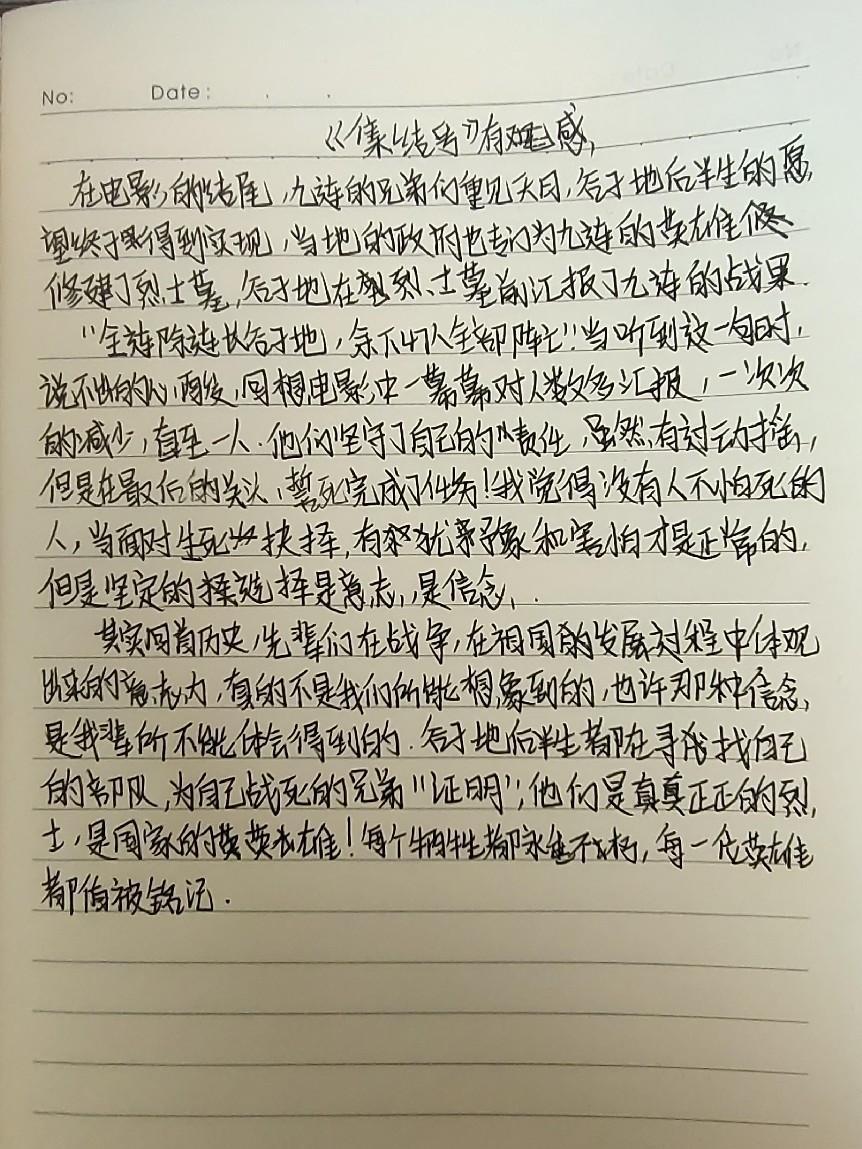 No: Date:
《集结号》有观感
在电影的结尾,九连的兄弟们重见天日,谷子地后半生的愿
望终于得到实现,当地的政府也专门为九连的英雄修
修建了烈士墓,谷子地在烈士墓前汇报了九连的战果.
"全连除连长谷子地,余下47人全部阵亡"!当听到这一句时,
说不出的心酸,回想电影中一幕幕对人数的汇报,一次次
的减少,直至一人.他们坚守了自己的职责任,虽然有过动摇,
但是在最后的关头,誓死完成了任务!我觉得没有人不怕死的
人,当面对生死抉择,有犹豫和害怕才是正常的,
但是坚定的选择是意志,是信念,.
其实回首历史,先辈们在战争,在祖国的发展过程中体现
出来的意志力,真的不是我们所能想象到的,也许那种信念,
是我辈所不能体会得到的.谷子地后半生都在寻找自己
的部队,为自己战死的兄弟"证明";他们是真真正正的烈
士,是国家的英雄!每个牺牲都永垂不朽,每一位英雄
都值被铭记.